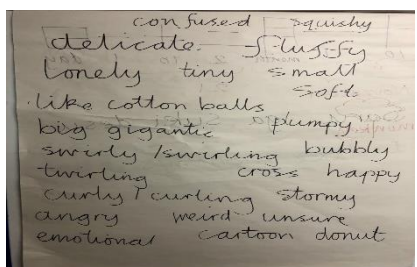 confused squishy
delicate. fluffy
lonely tiny small
soft
like cotton balls
big gigantic plumpy
swirly/swirling bubbly
twirling cross happy
curly/curling stormy
angry weird unsure
emotional cartoon donut